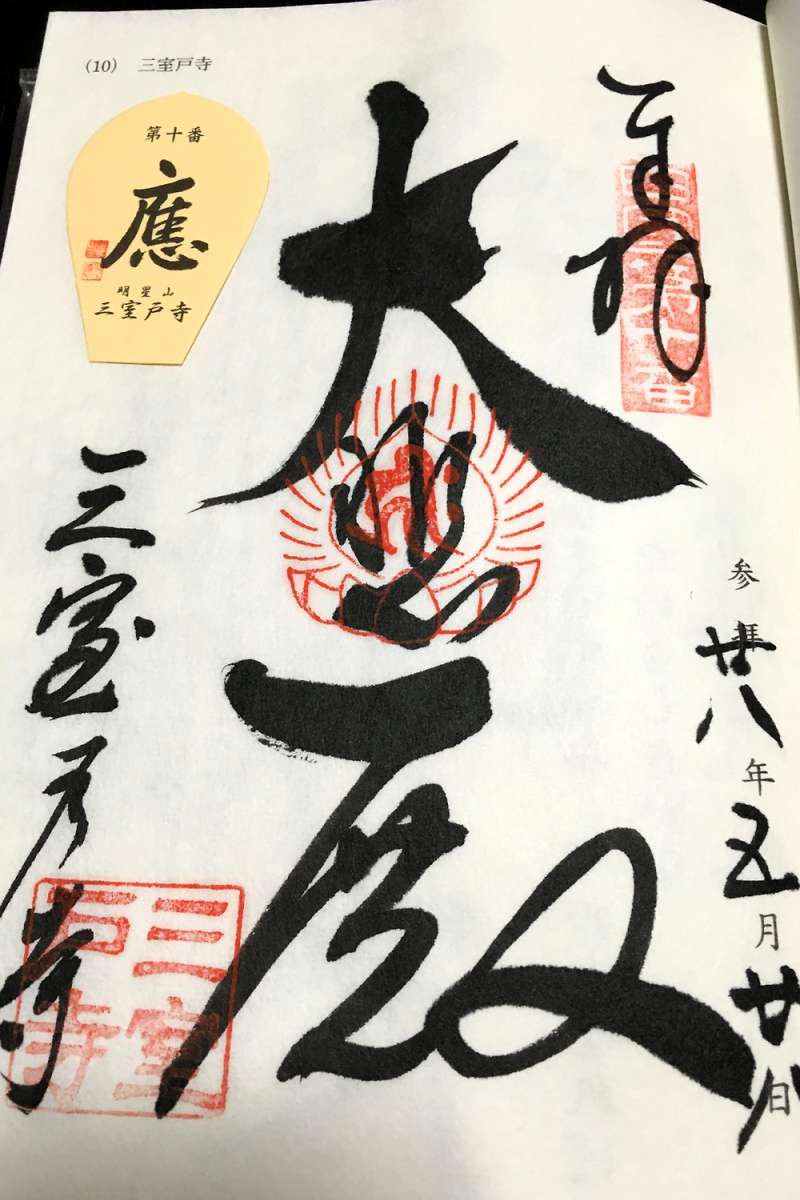 (10) 三室戸寺
第十番
應
明星山
三室戸寺
奉拝
参拝廿八年五月廿八日
大悲殿
三室戸寺
三室戸寺